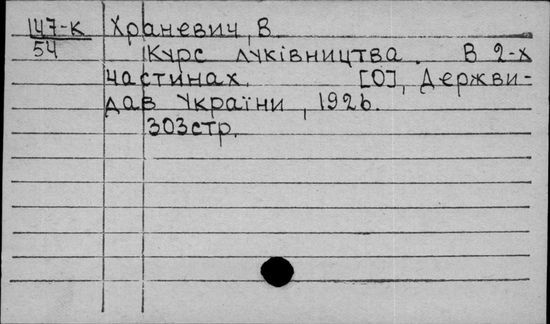 147-К Храневич, В
54 Курс луківництва. В 2-х
частинах. [О], Держви-
дав України, 1926.
303стр.